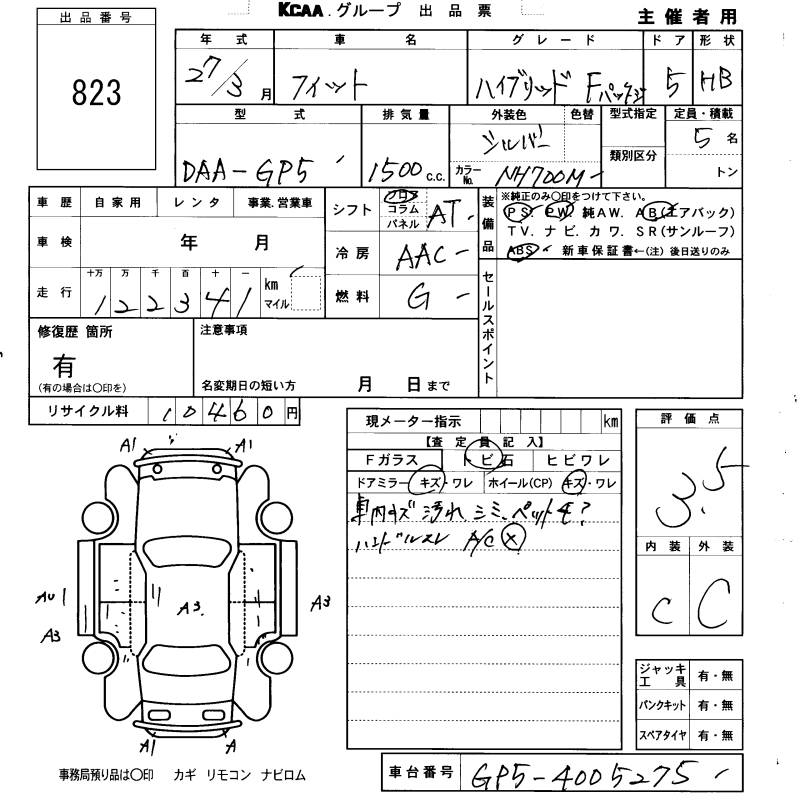 KCAA.グループ 出品票
主催者用
出品番号
823
年式 車名 グレード ドア 形状
27/3月 フィット ハイブリッド Fパッケージ 5 HB
型式 排気量 外装色 色替 型式指定 定員・積載
DAA-GP5 1500 c.c. シルバー 類別区分 5名
カラーNo. NH700M トン
車歴 自家用 レンタ 事業.営業車
シフト フロア コラム パネル AT
装備品 ※純正のみ〇印をつけて下さい。
PS. PW. 純AW. AB(エアバック)
TV. ナビ. カワ. SR(サンルーフ)
ABS 新車保証書←(注) 後日送りのみ
車検 年 月
冷房 AAC
走行 十万 万 千 百 十 一
122341 km マイル
燃料 G
セールスポイント
修復歴 箇所
有
(有の場合は〇印を)
注意事項
名変期日の短い方 月 日まで
リサイクル料 10460円
現メーター指示 km
【査定員記入】
Fガラス トビ石 ヒビワレ
ドアミラー キズ・ワレ ホイール(CP) キズ・ワレ
車内キズ 汚れ シミ、ペット毛?
ハンドルスレ A/C ×
評価点
3.5
内装 外装
C C
A1 A1
AU1 A3 A3
A3
A1 A
ジャッキ工具 有・無
パンクキット 有・無
スペアタイヤ 有・無
事務局預り品は〇印 カギ リモコン ナビロム
車台番号 GP5-4005275